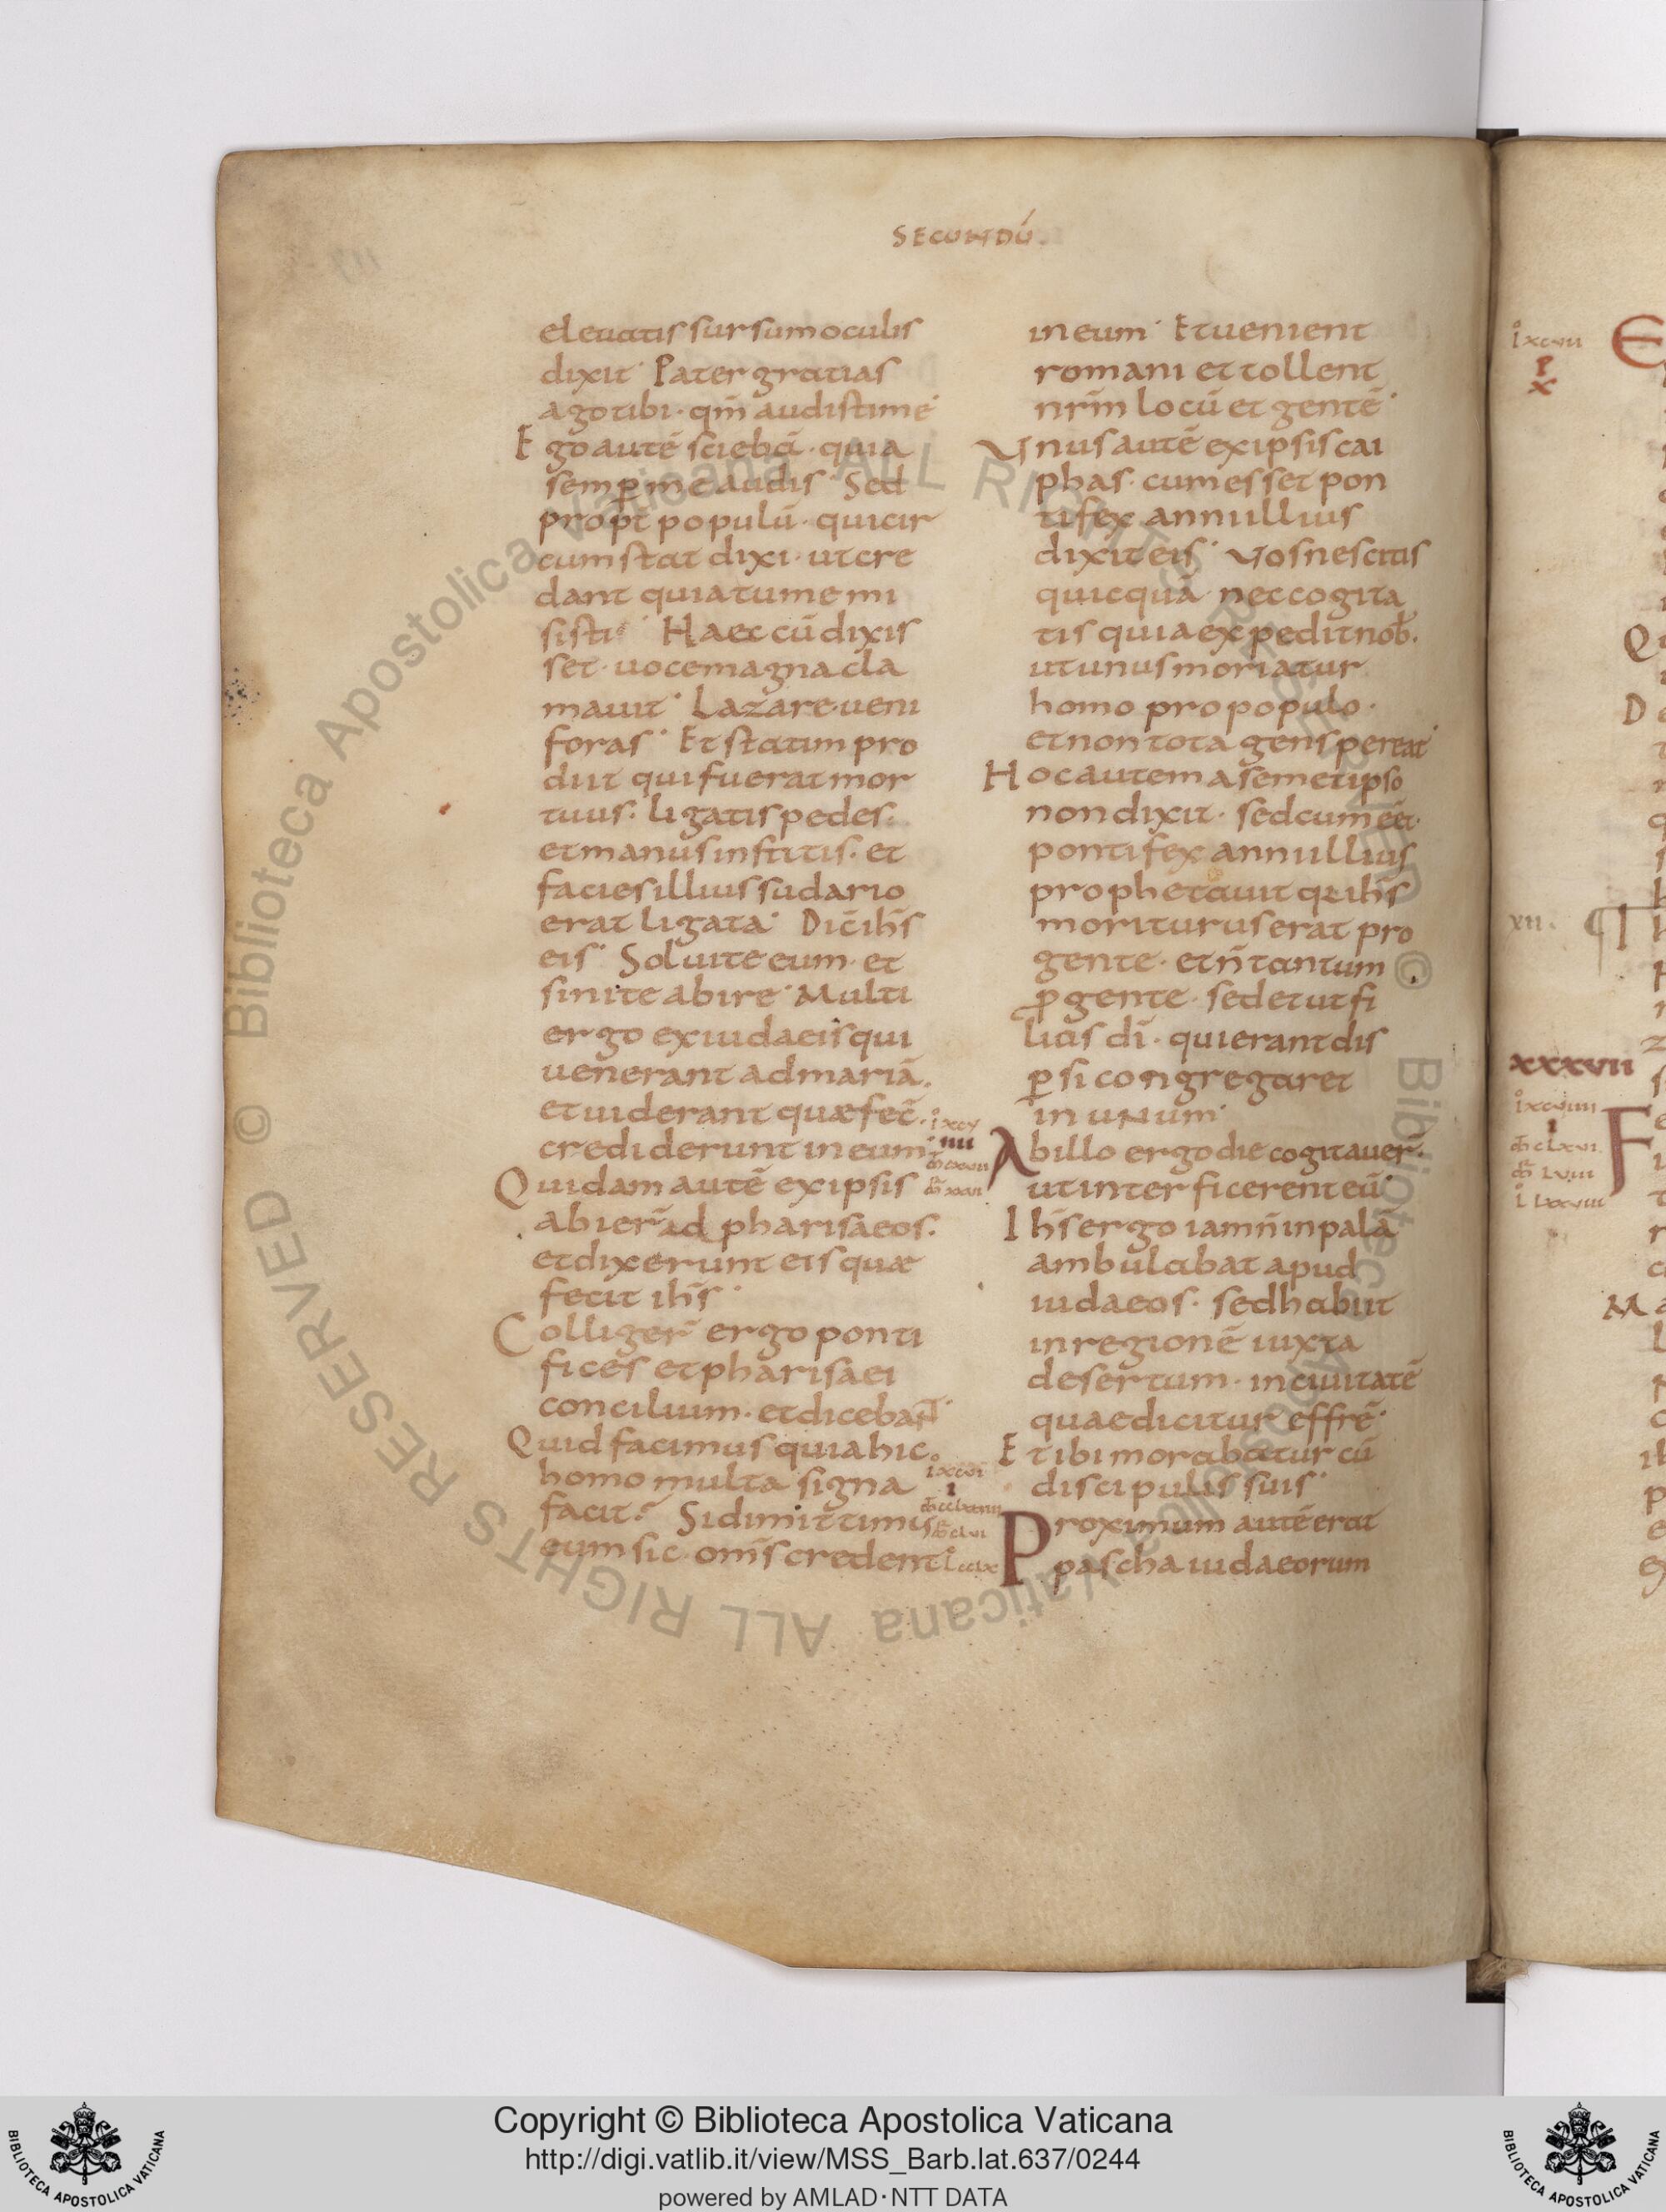 SECUNDŪ.
eleuatis sursum oculis
dixit· Pater gratias
ago tibi· qm̄ audisti me·
Ego autē sciebā· quia
semꝑ me audis· Sed
propt̄ populū· qui cir
cumstat dixi· ut cre
dant quia tu me mi
sisti· Haec cū dixis
set· uoce magna cla
mauit· Lazare ueni
foras· Et statim pro
diit qui fuerat mor
tuus· ligatis pedes·
et manus institis· et
facies illius sudario
erat ligata· Dic̄ ih̄s
eis· Soluite eum· et
sinite abire· Multi
ergo ex iudaeis qui
uenerant ad mariā.
et uiderant quæ fec̄.
crediderunt in eum·
Quidam autē ex ipsis
abier̄ ad pharisaeos.
et dixerunt eis quæ
fecit ih̄s·
Colliger̄ ergo ponti
fices et pharisaei
concilium· et dicebant·
Quid facimus quia hic
homo multa signa
facit? Si dimittimus
eum sic· om̄s credent
in eum· Et uenient
romani et tollent
nr̄m locū et gentē·
Vnus autē ex ipsis cai
phas· cum esset pon
tifex anni illius
dixit eis· Vos nescitis
quicquā nec cogita
tis quia expedit nob̄.
ut unus moriatur
homo pro populo·
et non tota gens pereat·
Hoc autem a semetipso
non dixit· sed cum eēt·
pontifex anni illius
prophetauit quia ih̄s
moriturus erat pro
gente· et n̄ tantum
ꝓ gente· sed et ut fi
lios dī· qui erant dis
ꝑsi congregaret
in unum·
Ab illo ergo die cogitauer̄·
ut interficerent eū·
Ih̄s ergo iam n̄ in palā
ambulabat apud
iudaeos· sed habiit
in regionē iuxta
desertum· in ciuitatē
quae dicitur effrē·
Et ibi morabatur cū
discipulis suis·
Proximum autē erat
pascha iudaeorum
xii.
xxxvii
Copyright © Biblioteca Apostolica Vaticana
http://digi.vatlib.it/view/MSS_Barb.lat.637/0244
powered by AMLAD·NTT DATA
BIBLIOTECA APOSTOLICA VATICANA
BIBLIOTECA APOSTOLICA VATICANA